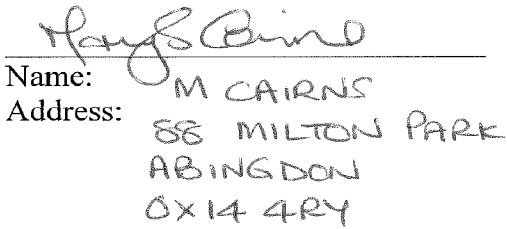 Name: M CAIRNS
Address: 88 MILTON PARK
ABINGDON
OX14 4RY